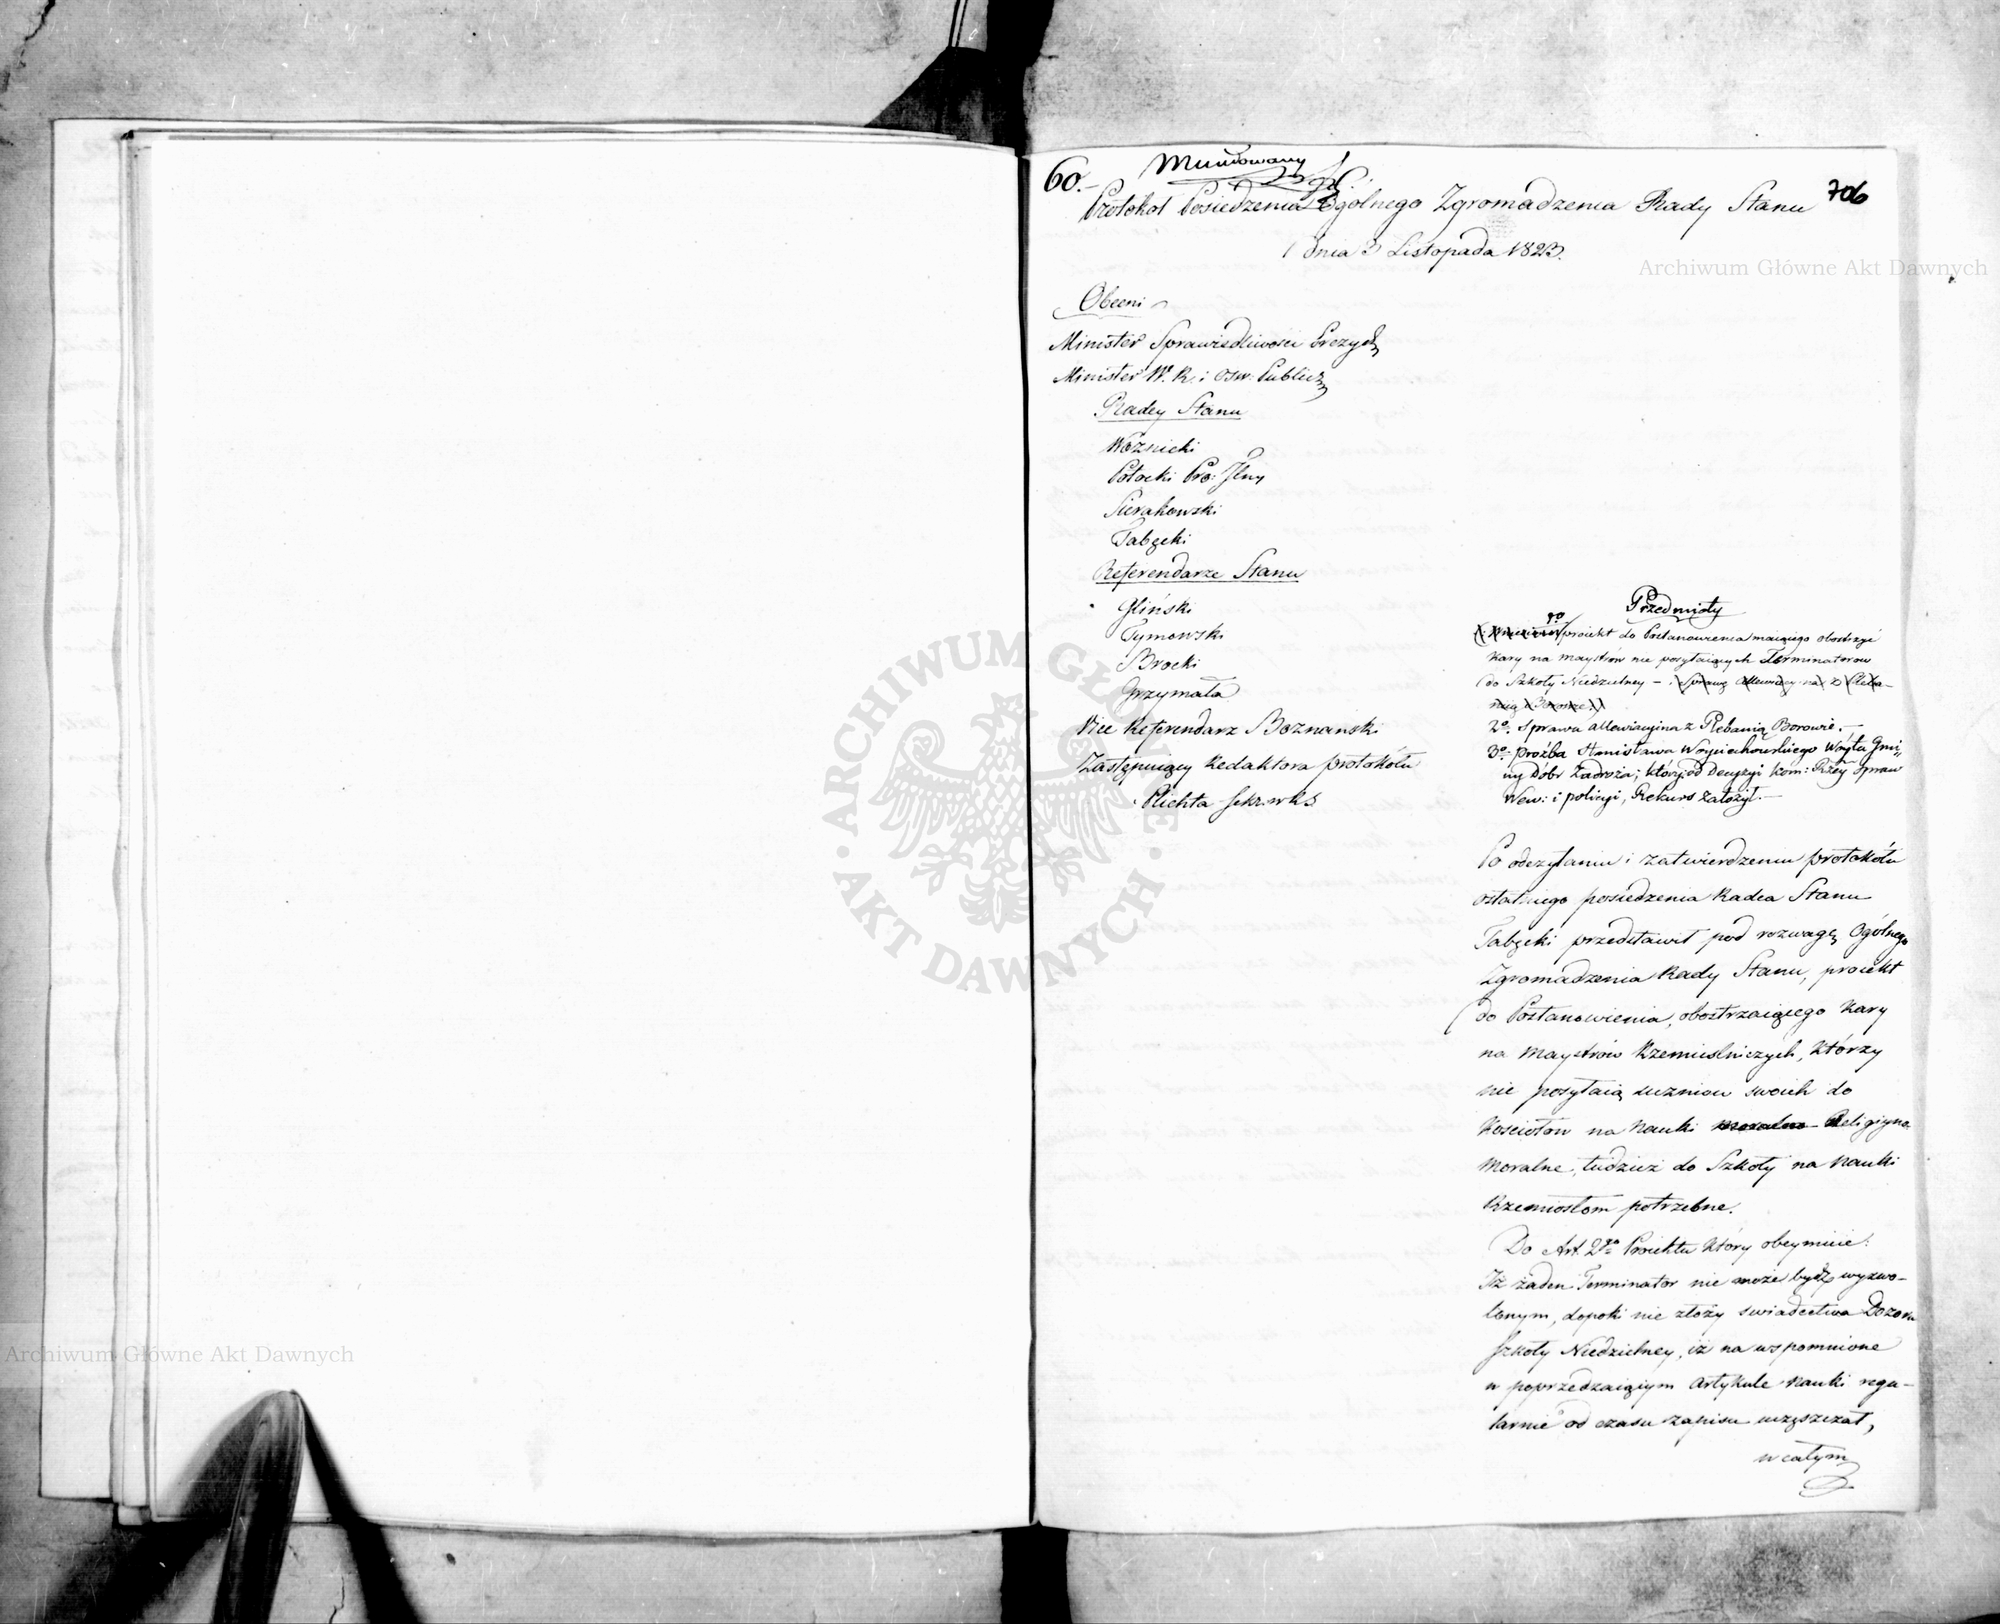 60.-
Protokół Posiedzenia Ogólnego Zgromadzenia Rady Stanu
706
dnia 3 Listopada 1823.
Obecni
Minister Sprawiedliwości Prezyd:
Minister W. R. i Osw: Publicz:
Radcy Stanu
Woznicki
Potocki Pro: Jlny
Sierakowski
Tabęcki
Referendarze Stanu
Gliński
Tymowski
Brocki
Grzymała
Vice Referendarz Boznański
Zastępuiący Redaktora protokółu
Plichta
Przedmioty
1º proiekt do Postanowienia maiącego obostrzyć
kary na maystrów nie posyłaiących Terminatorow
do Szkoły Niedzielney –
2º. Sprawa allewiacyina z Plebanią Borowie.–
3º. Proźba Stanisława Woyciechowskiego Wóyta Gmi„
ny Dóbr Zadroża; który od decyzyi Kom: Rząy Spraw
Wew: i policyi, Rekurs założył.–
Po odczytaniu i zatwierdzeniu protokółu
ostatniego posiedzenia Radca Stanu
Tabęcki przedstawił pod rozwagę Ogólnego
Zgromadzenia Rady Stanu, proiekt
do Postanowienia, obostrzaiącego kary
na Maystrów Rzemieślniczych, którzy
nie posyłaią uczniow swoich do
Kościołow na Nauki Religiyno
Moralne, tudzież do Szkoły na Nauki
Rzemiosłom potrzebne.
Do Art. 2go Proiektu który obeymuie:
Iż żaden Terminator nie może bydź wyzwo-
lonym, dopoki nie złoży swiadectwa Dozoru
Szkoły Niedzielney, iż na wspomnione
w poprzedzaiącym Artykule nauki regu-
larnie od czasu zapisu uczęszczał,
w całym
Archiwum Główne Akt Dawnych
Archiwum Główne Akt Dawnych
ARCHIWUM GŁÓWNE · AKT DAWNYCH ·